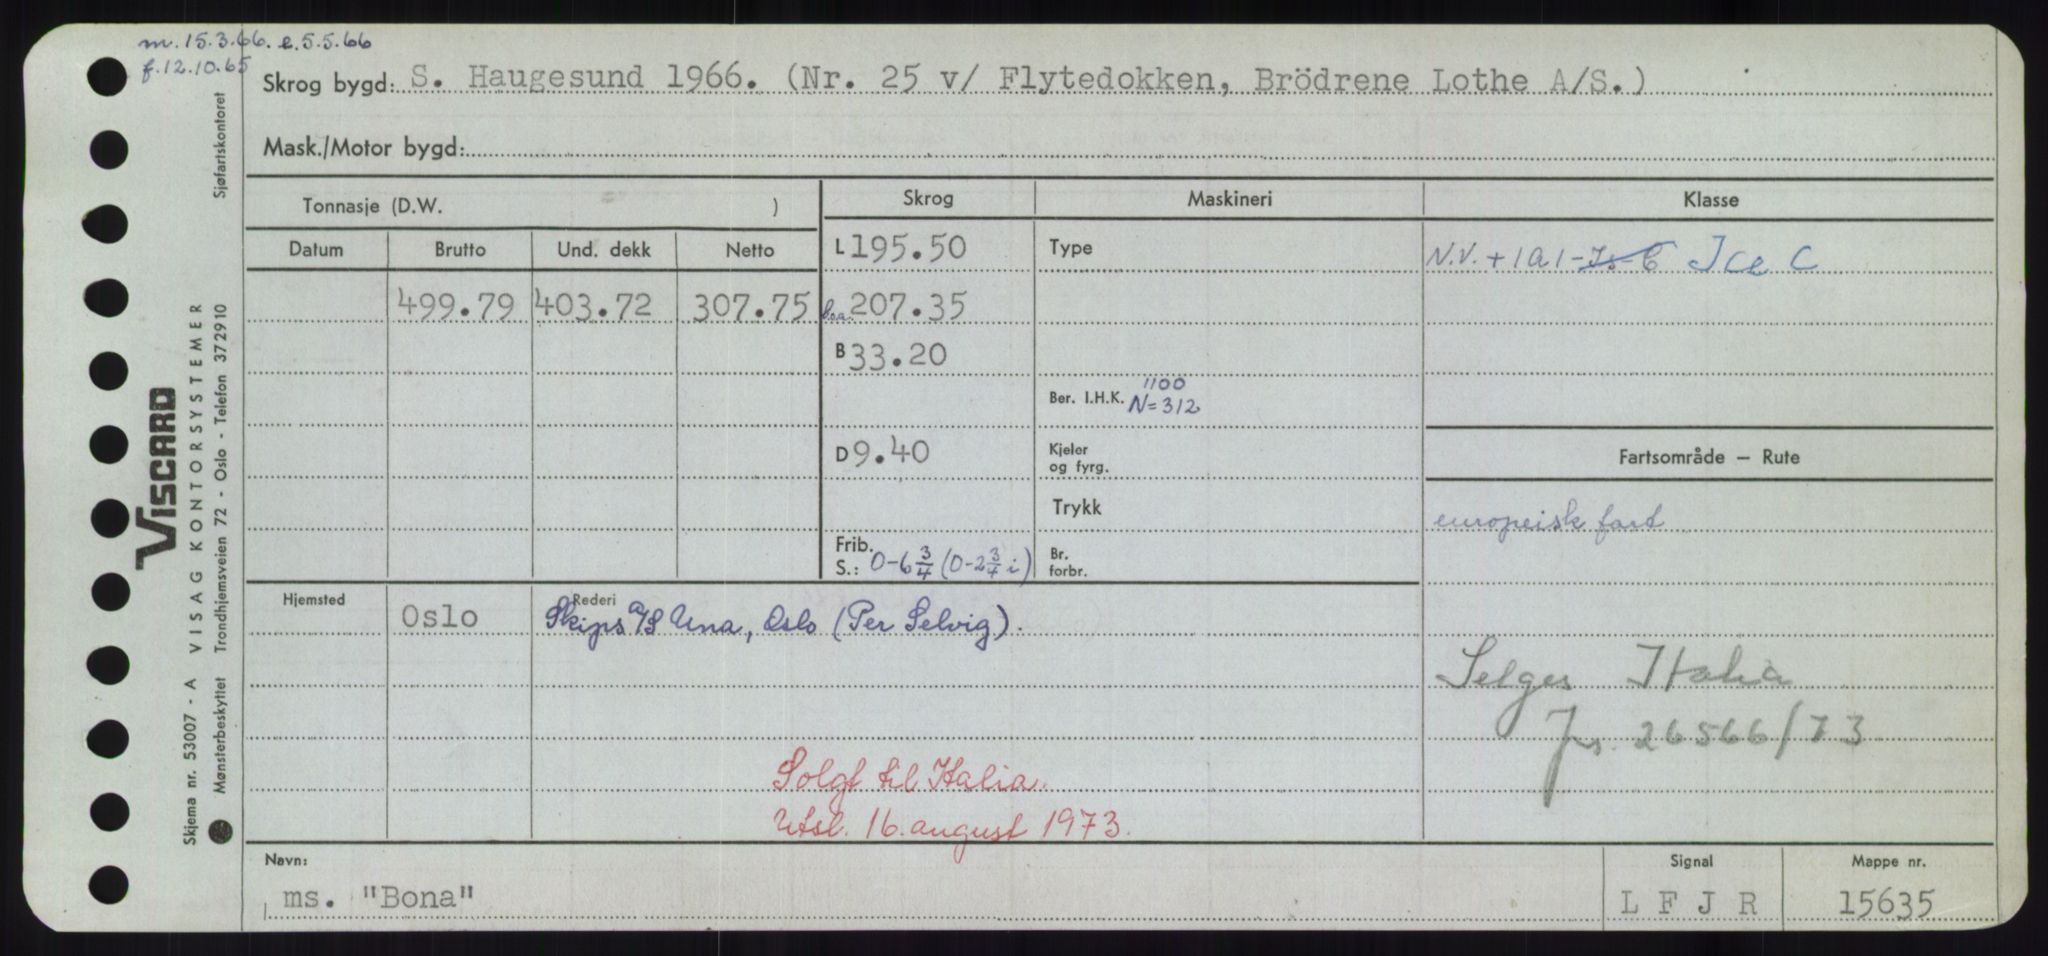 m. 15.3.66. e. 5.5.66
f. 12.10.65
Skrog bygd: S. Haugesund 1966. (Nr. 25 v/ Flytedokken, Brödrene Lothe A/S.)
Mask./Motor bygd:
Tonnasje (D.W. )
Skrog
Maskineri
Klasse
Datum Brutto Und. dekk Netto
L 195.50
Type
N.V. + 1A1 - Is-C Ice C
499.79 403.72 307.75
l.o.a. 207.35
B 33.20
Ber. I.H.K. 1100
N=312
D 9.40
Kjeler
og fyrg.
Fartsområde – Rute
Trykk
europeisk fart
Frib.
S.: 0-6 3/4 (0-2 3/4 i)
Br.
forbr.
Hjemsted Oslo
Rederi
Skips A/S Una, Oslo (Per Selvig).
Selges Italia
Jr. 26566/73
Solgt til Italia.
Utsl. 16. august 1973.
Navn: Signal Mappe nr.
ms. "Bona" L F J R 15635
Sjøfartskontoret
VISCARD
VISAG KONTORSYSTEMER
Trondhjemsveien 72 - Oslo - Telefon 372910
Skjema nr. 53007 - A
Mønsterbeskyttet